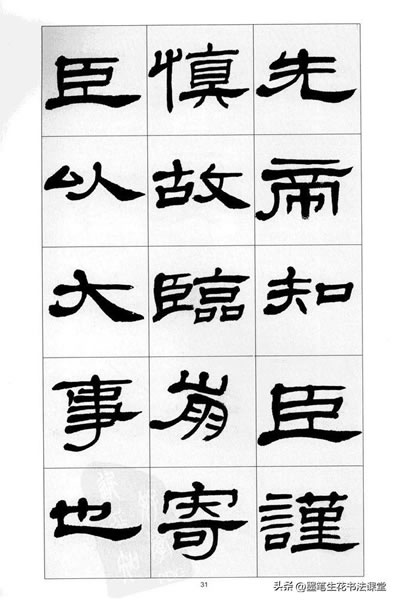 先帝知臣謹
慎故臨崩寄
臣以大事也
31
头条@墨笔生花书法课堂